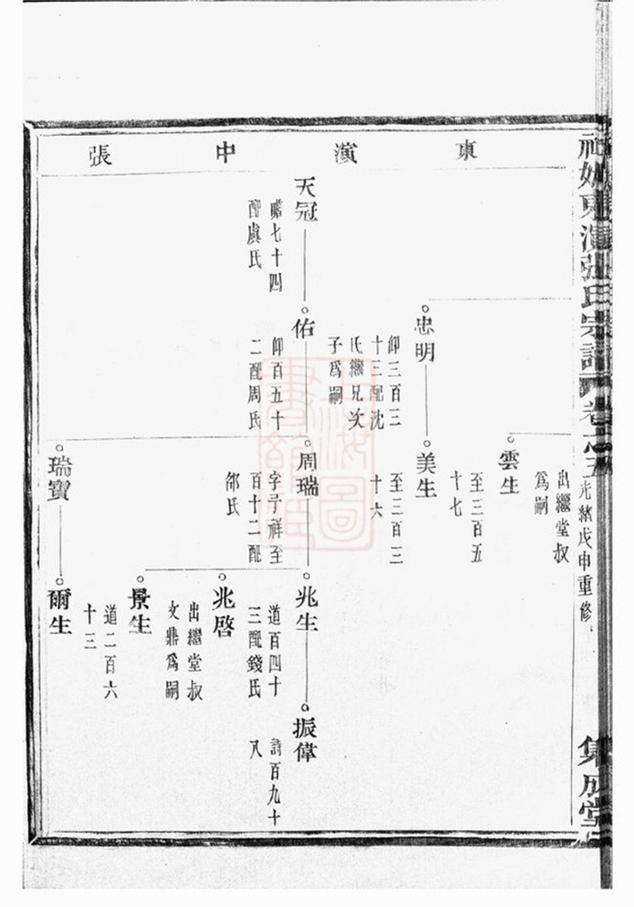 東演中張
雲生
出繼堂叔
爲嗣
忠明
仰三百三
十三配沈
氏繼兄次
子爲嗣
美生
至三百五
十七
至三百三
十六
天冠
瞻七十四
配虞氏
佑
仰百五十
二配周氏
周瑞
字予祥至
百十二配
邵氏
兆生
道百四十
三配錢氏
振偉
詩百九十
八
兆啓
出繼堂叔
文鼎爲嗣
景生
道二百六
十三
瑞寶
爾生
東演張氏宗譜
卷
光緒戊申重修
集成堂